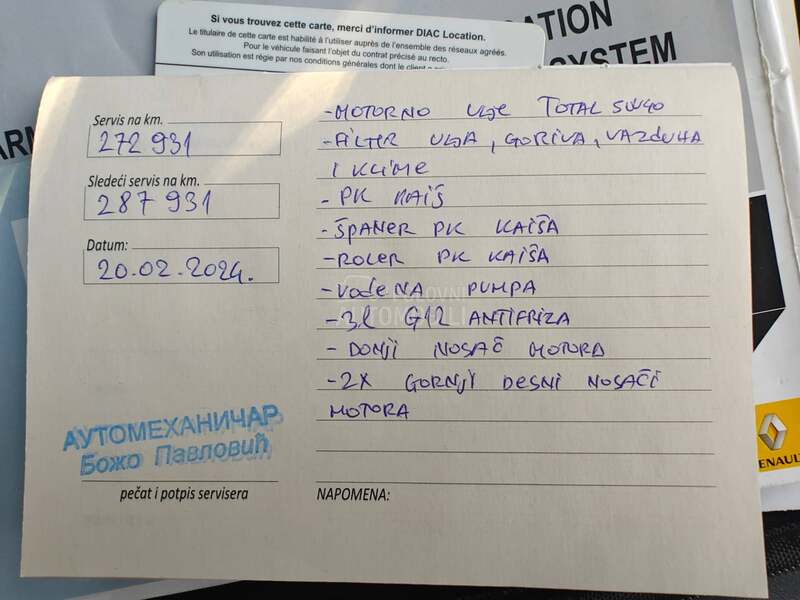 Si vous trouvez cette carte, merci d'informer DIAC Location.
Le titulaire de cette carte est habilité à l'utiliser auprès de l'ensemble des réseaux agréés.
Pour le véhicule faisant l'objet du contrat précisé au recto.
Son utilisation est régie par nos conditions générales dont le client a
SYSTEM
Servis na km.
272 931
Sledeći servis na km.
287 931
Datum:
20.02.2024.
- MOTORNO ULJE TOTAL 5W40
- FILTER ULJA, GORIVA, VAZDUHA
I KLIME
- PK KAIŠ
- ŠPANER PK KAIŠA
- ROLER PK KAIŠA
- VODENA PUMPA
- 3L G12 ANTIFRIZA
- DONJI NOSAČ MOTORA
- 2X GORNJI DESNI NOSAČI
MOTORA
POLOVNI
AUTOMOBILI
АУТОМЕХАНИЧАР
Божо Павловић
pečat i potpis servisera
NAPOMENA: